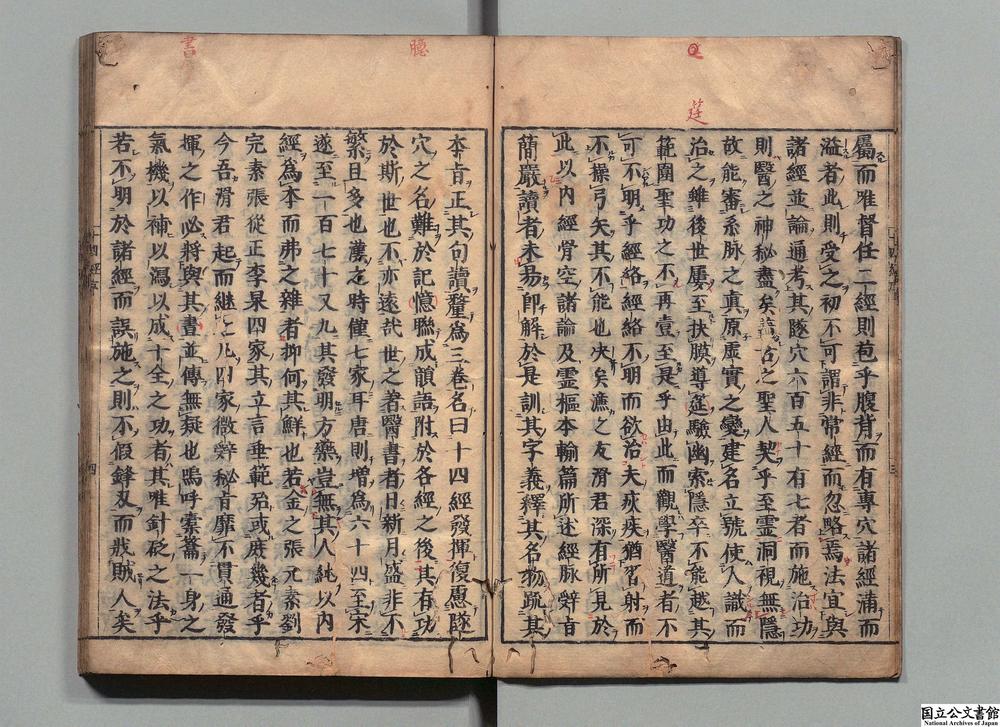 屬而唯督任二經則苞乎腹背而有專穴諸經滿而
溢者此則受之初不可謂非常經而忽略焉法宜與
諸經並論通考其隧穴六百五十有七者而施治功
則醫之神秘盡矣蓋古之聖人契乎至靈洞視無隱
故能審系脉之真原虛實之變建名立號使人識而
治之雖後世屢至抉膜導筳驗幽索隱卒不能越其
範圍聖功之不再壹至是乎由此而觀學醫道者不
可不明乎經絡經絡不明而欲治夫疢疾猶習射而
不操弓矢其不能也决矣濂之友滑君深有所見於
此以内經骨空諸論及霊樞本輸篇所述經脉辭旨
簡嚴讀者未易即解於是訓其字義釋其名物疏其
本旨正其句讀釐為三卷名曰十四經發揮復慮隧
穴之名難於記憶聯成韻語附於各經之後其有功
於斯世也不亦遠哉世之著醫書者日新月盛非不
繁且多也漢之時僅七家耳唐則増為六十四至宋
遂至一百七十又九其發明方藥豈無其人純以内
經為本而弗之雜者抑何其鮮也若金之張元素劉
完素張從正李杲四家其立言垂範殆或庶幾者乎
今吾滑君起而継之凡四家微辭秘旨靡不貫通發
揮之作必將與其書並傳無疑也嗚呼橐籥一身之
氣機以補以瀉以成十全之功者其唯針砭之法乎
若不明於諸經而誤施之則不假鋒刄而戕賊人矣
筳
臆
書
三
四
国立公文書館
National Archives of Japan